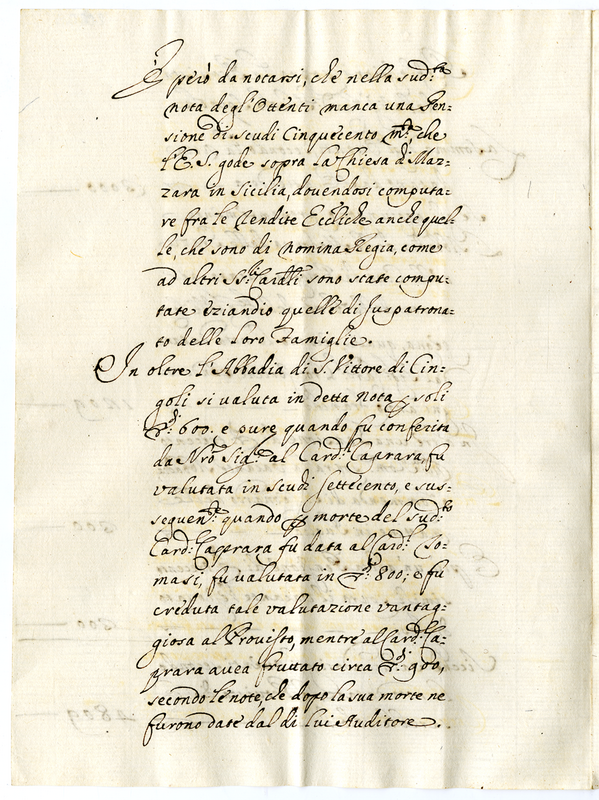 È però da notarsi, che nella sud.ta
nota degl'Ottenti manca una Pen:
sione di scudi Cinquecento m.ta, che
l'E. S. gode sopra la Chiesa di Maz:
zara in Sicilia, dovendosi computa:
re fra le Rendite Eccl.iche anche quel:
le, che sono di nomina Regia, come
ad altri SS.ri Card.li sono state compu:
tate eziandio quelle di Juspatrona:
to delle loro Famiglie.
In oltre l'Abbadia di S. Vittore di Cin:
goli si valuta in detta nota p soli
600. e pure quando fu conferita
da Nro Sig.re al Card.l Caprara, fu
valutata in scudi settecento, e sus:
seguen.te quando p morte del sud.to
Card.l Caprara fu data al Card.l To:
masi, fu valutata in 800; e fu
creduta tale valutazione vantag:
giosa al Provisto, mentre al Card.l Ca:
prara avea fruttato circa 900,
secondo le note, che dopo la sua morte ne
furono date dal di lui Auditore.